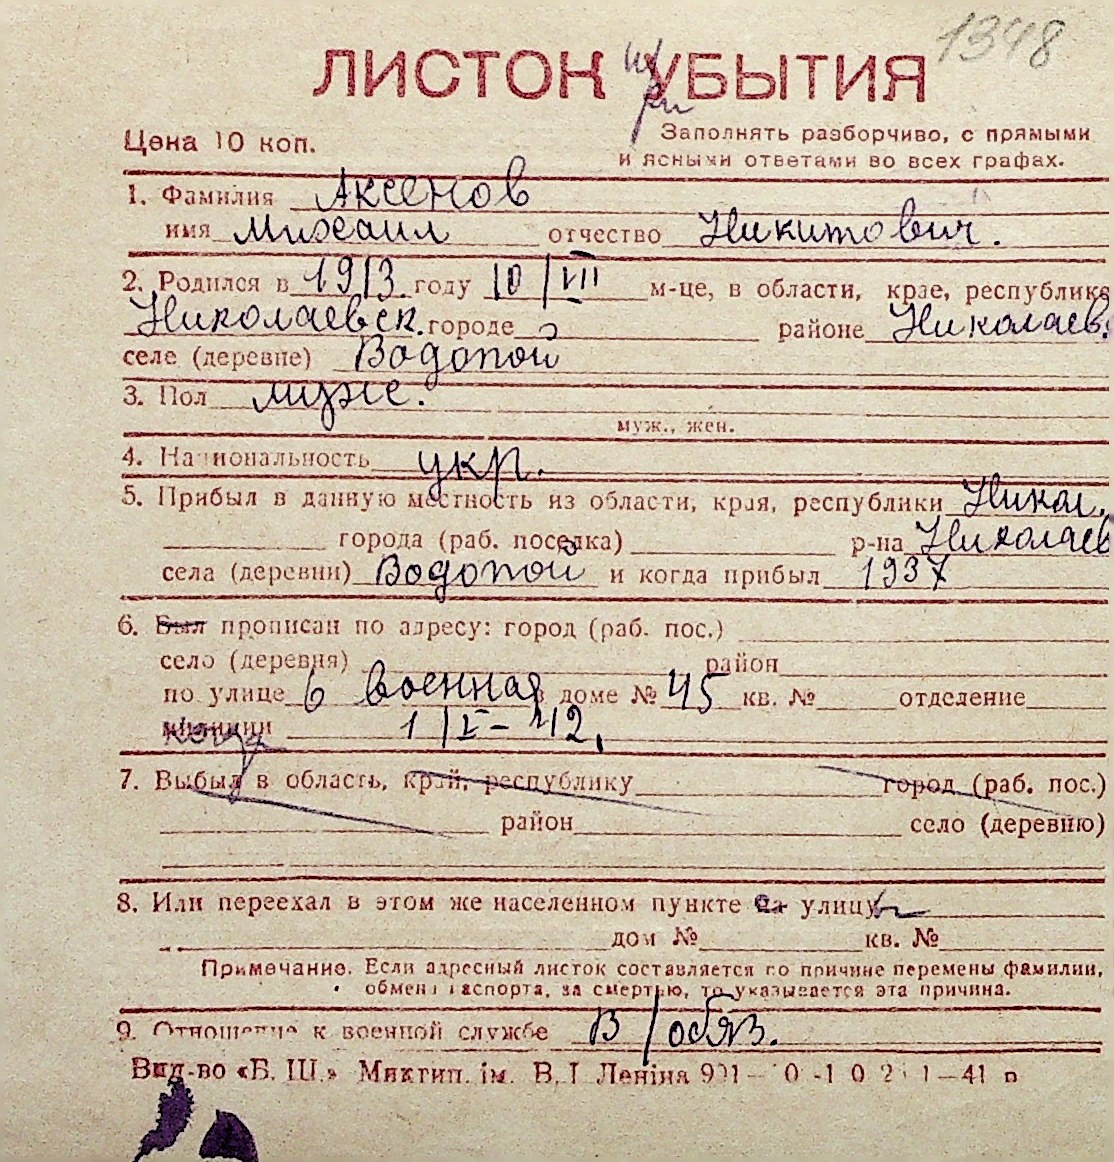 1348
ЛИСТОК УБЫТИЯ
при
Цена 10 коп. Заполнять разборчиво, с прямыми
и ясными ответами во всех графах.
1. Фамилия Аксенов
имя Михаил отчество Никитович.
2. Родился в 1913 году 10/VIII м-це, в области, крае, республике
Николаевск. городе районе Николаев.
селе (деревне) Водопой
3. Пол муж.
муж., жен.
4. Национальность укр.
5. Прибыл в данную местность из области, края, республики Никол.
города (раб. поселка) р-на Николаев
села (деревни) Водопой и когда прибыл 1937
6. Был прописан по адресу: город (раб. пос.)
село (деревня) район
по улице 6 военная в доме № 45 кв. № отделение
милиции 1/I-42.
7. Выбыл в область, край, республику город (раб. пос.)
район село (деревню)
8. Или переехал в этом же населенном пункте на улицу
дом № кв. №
Примечание. Если адресный листок составляется по причине перемены фамилии,
обмена паспорта, за смертью, то указывается эта причина.
9. Отношение к военной службе В/обяз.
Вид-во «Б. Ш.» Миктип. ім. В. І. Леніна